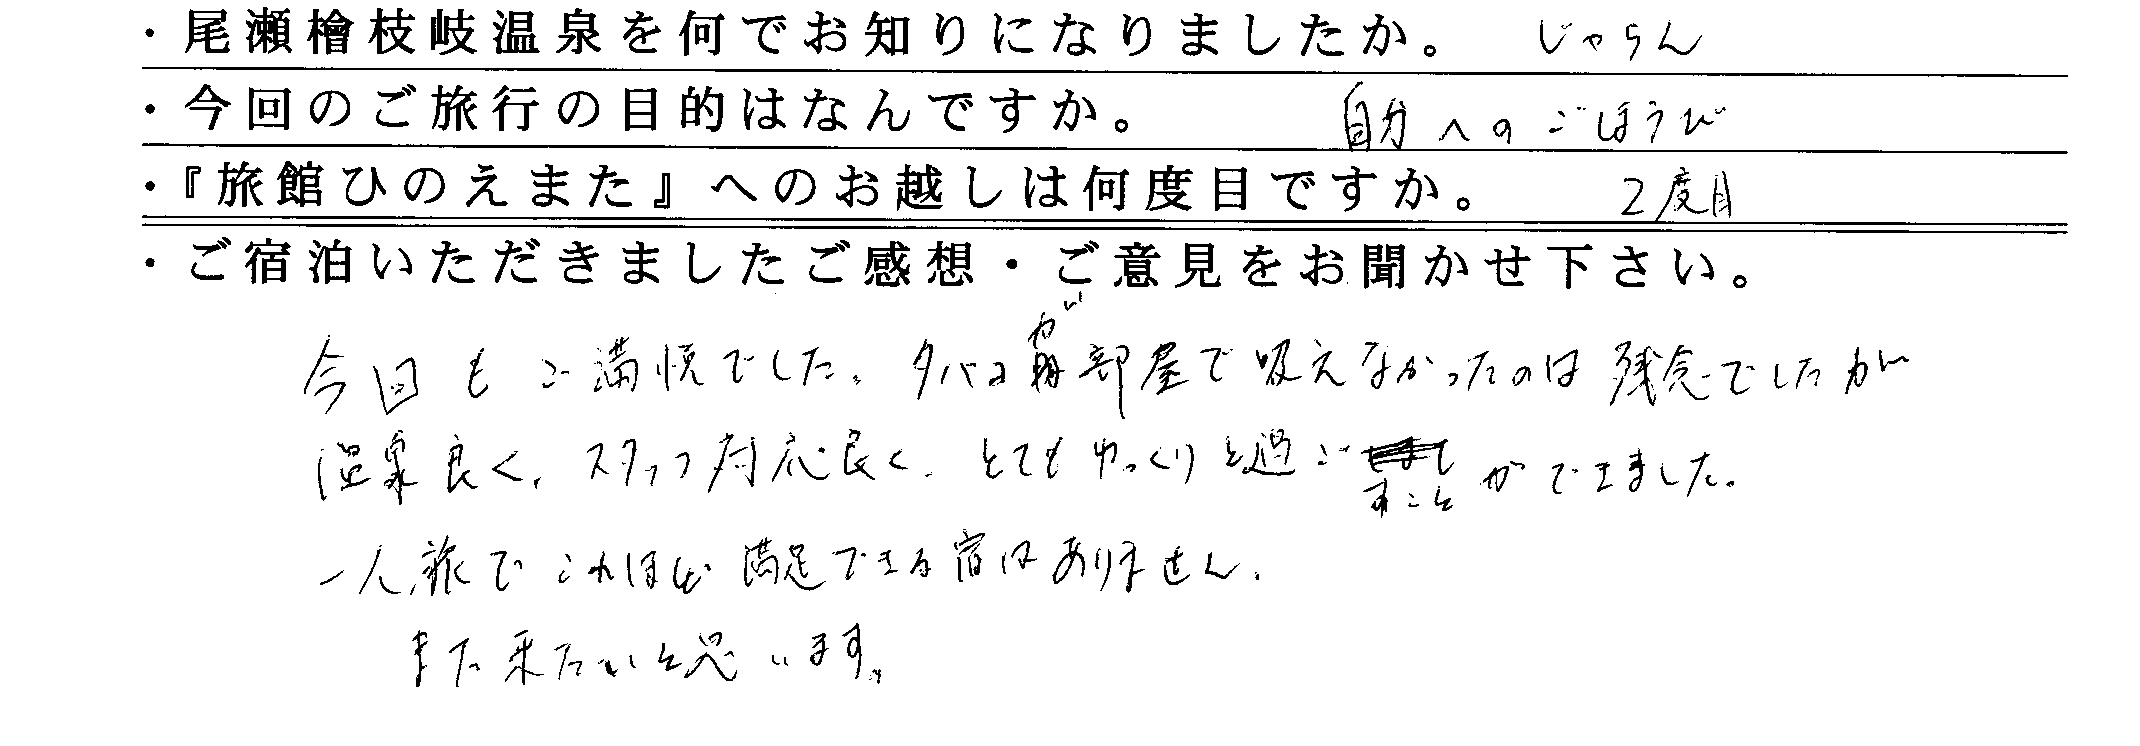 ・尾瀬檜枝岐温泉を何でお知りになりましたか。 じゃらん
・今回のご旅行の目的はなんですか。 自分へのごほうび
・『旅館ひのえまた』へのお越しは何度目ですか。 2度目
・ご宿泊いただきましたご感想・ご意見をお聞かせ下さい。
今回もご満悦でした。タバコが部屋で吸えなかったのは残念でしたが
温泉良く、スタッフ対応良く、とてもゆっくりと過ごすことができました。
一人旅でこれほど満足できる宿はありません。
また来たいと思います。